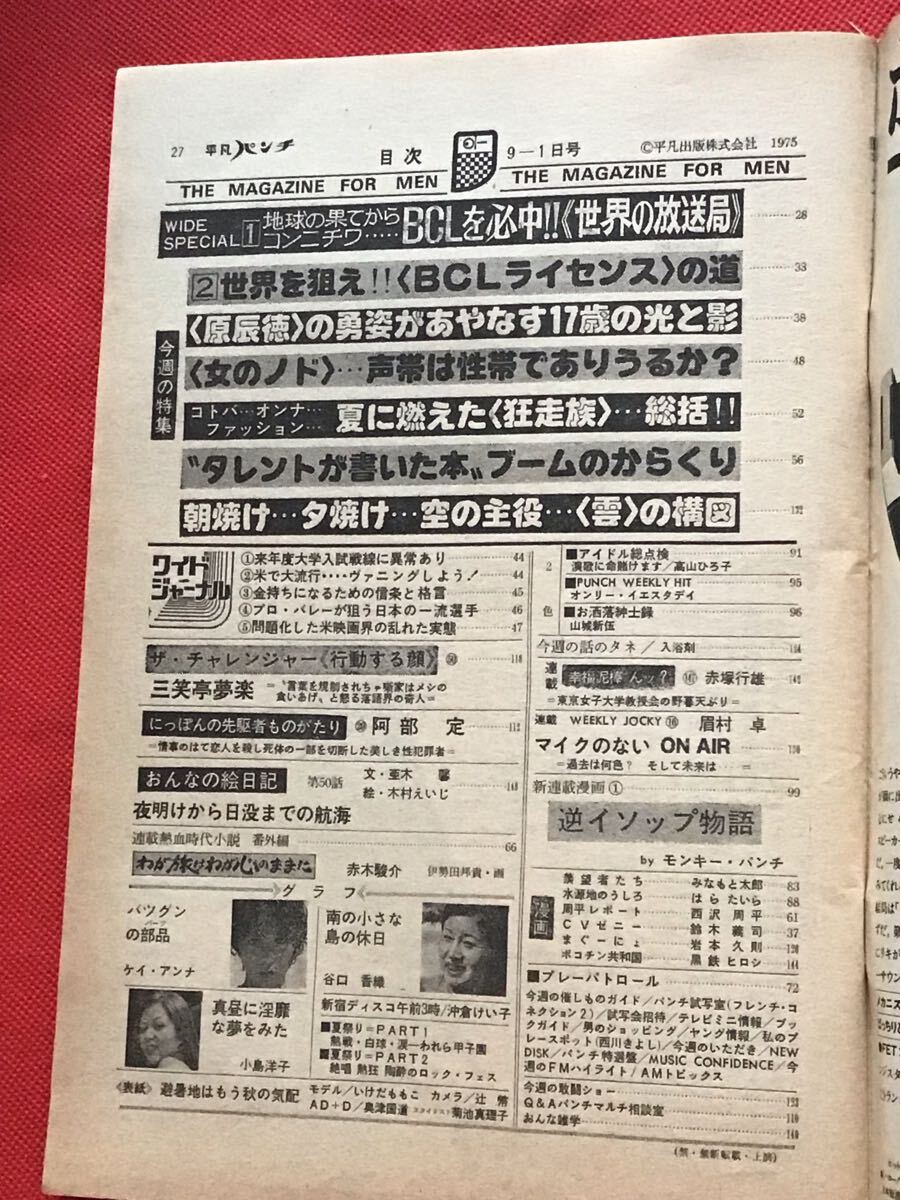 27 平凡パンチ 目次 9―1日号 ©平凡出版株式会社 1975
THE MAGAZINE FOR MEN THE MAGAZINE FOR MEN
今週の特集
WIDE SPECIAL 1 地球の果てからコンニチワ…… BCLを必中!!《世界の放送局》 28
2 世界を狙え!!〈BCLライセンス〉の道 33
〈原辰徳〉の勇姿があやなす17歳の光と影 38
〈女のノド〉…声帯は性帯でありうるか? 48
コトバ…オンナ…ファッション… 夏に燃えた〈狂走族〉…総括!! 52
〝タレントが書いた本〟ブームのからくり 56
朝焼け…夕焼け…空の主役…〈雲〉の構図 132
ワイドジャーナル
①来年度大学入試戦線に異常あり 44
②米で大流行‥‥ヴァニングしよう! 44
③金持ちになるための信条と格言 45
④プロ・バレーが狙う日本の一流選手 46
⑤問題化した米映画界の乱れた実態 47
ザ・チャレンジャー《行動する顔》 110
三笑亭夢楽 =〝言葉を規制されちゃ噺家はメシの食いあげ〟と怒る落語界の奇人=
にっぽんの先駆者ものがたり 阿部 定 112
=情事のはて恋人を殺し死体の一部を切断した美しき性犯罪者=
おんなの絵日記 第50話 文・亜木 馨 絵・木村えいじ
夜明けから日没までの航海
連載熱血時代小説 番外編 66
わが旅はわが心のままに 赤木駿介 伊勢田邦貴・画
グラフ
バツグンの部品 パーツ
ケイ・アンナ
真昼に淫靡な夢をみた
小島洋子
南の小さな島の休日
谷口 香織
新宿ディスコ午前3時/沖倉けい子
■夏祭り=PART1
熱戦・白球・涙―われら甲子園
■夏祭り=PART2
絶唱 熱狂 陶酔のロック・フェス
〈表紙〉避暑地はもう秋の気配 モデル/いけだももこ カメラ/辻 幣
AD+D/奥津国道 スタイリスト 菊池真理子
2色
■アイドル総点検 91
演歌に命賭けます/高山ひろ子
■PUNCH WEEKLY HIT 95
オンリー・イエスタデイ
■お洒落紳士録 96
山城新伍
今週の話のタネ/入浴剤
連載 幸福泥棒 んッ? 赤塚行雄
=東京女子大学教授会の野暮天ぶり=
連載 WEEKLY JOCKY ⑯ 眉村 卓
マイクのない ON AIR
=過去は何色? そして未来は……=
新連載漫画① 99
逆イソップ物語
by モンキー・パンチ
漫画
羨望者たち みなもと太郎 83
水源地のうしろ はらたいら 88
周平レポート 西沢周平 61
CVゼニー 鈴木義司 37
まぐーにょ 岩本久則 120
ポコチン共和国 黒鉄ヒロシ 144
■プレーパトロール 72
今週の催しものガイド/パンチ試写室(フレンチ・コ
ネクション2)/試写会招待/テレビミニ情報/ブッ
クガイド/男のショッピング/ヤング情報/私のプ
レースポット(西川きよし)/今週のいただき/NEW
DISK/パンチ特選盤/MUSIC CONFIDENCE/今
週のFMハイライト/AMトピックス
今週の敢闘ショー 123
Q&Aパンチマルチ相談室 119
おんな雑学 140
(禁・無断転載・上演)